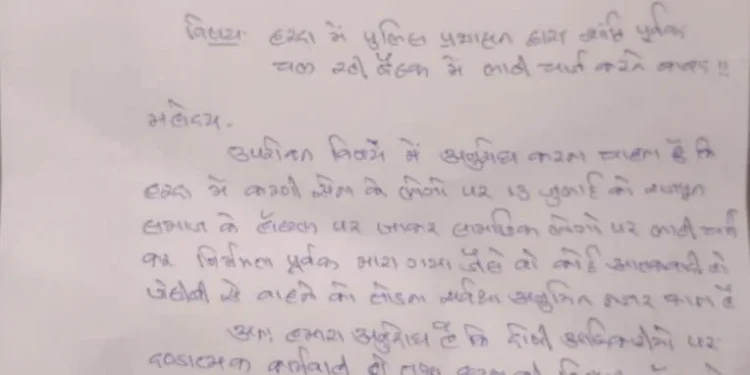 विषय: हरदा में पुलिस प्रशासन द्वारा शांति पूर्वक
चल रही बैठक में लाठी चार्ज करने बाबद !!
महोदय,
उपरोक्त विषय में अनुरोध करना चाहता है कि
हरदा में करणी सेना के लोगो पर 13 जुलाई को राजपूत
समाज के हॉस्टल पर जाकर सामाजिक लोगो पर लाठी चार्ज
कर निर्ममता पूर्वक मारा गया जैसे वो कोई आतंकवादी हो
से वाहनो को तोडना सर्वथा अनुचित
अतः हमारा अनुरोध है कि दोषी अधिकारीयो पर
दण्डात्मक कार्यवाही हो